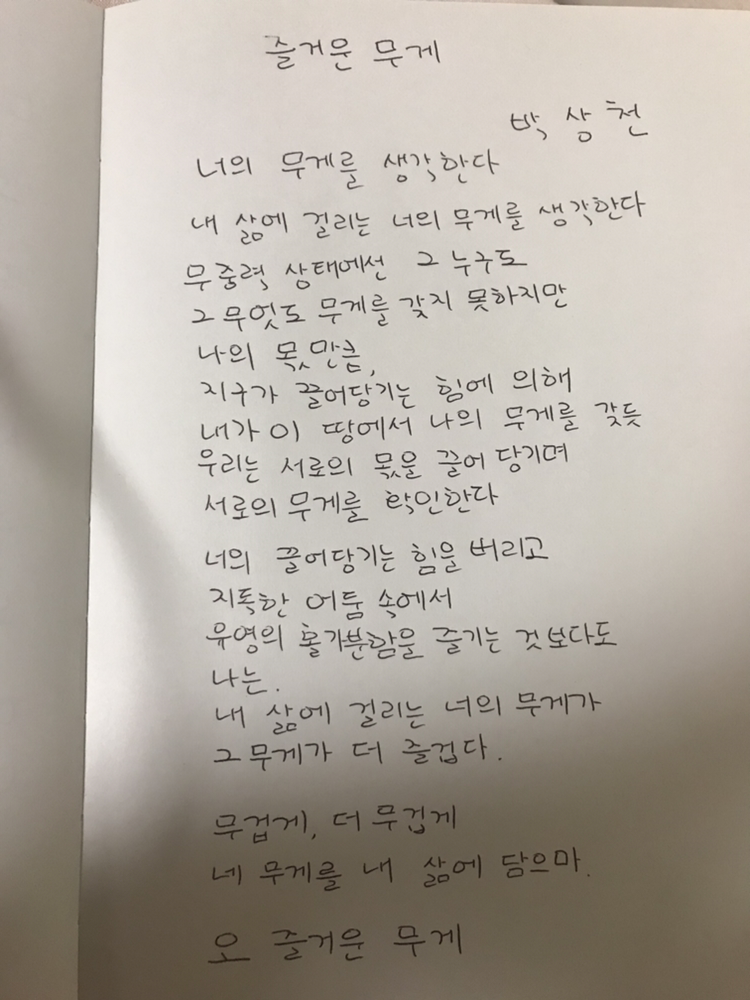 즐거운 무게
박상천
너의 무게를 생각한다
내 삶에 걸리는 너의 무게를 생각한다
무중력 상태에선 그 누구도
그 무엇도 무게를 갖지 못하지만
나의 몫만큼,
지구가 끌어당기는 힘에 의해
내가 이 땅에서 나의 무게를 갖듯
우리는 서로의 몫을 끌어 당기며
서로의 무게를 확인한다
너의 끌어당기는 힘을 버리고
지독한 어둠 속에서
유영의 홀가분함을 즐기는 것보다도
나는.
내 삶에 걸리는 너의 무게가
그 무게가 더 즐겁다.
무겁게, 더 무겁게
네 무게를 내 삶에 담으마.
오 즐거운 무게